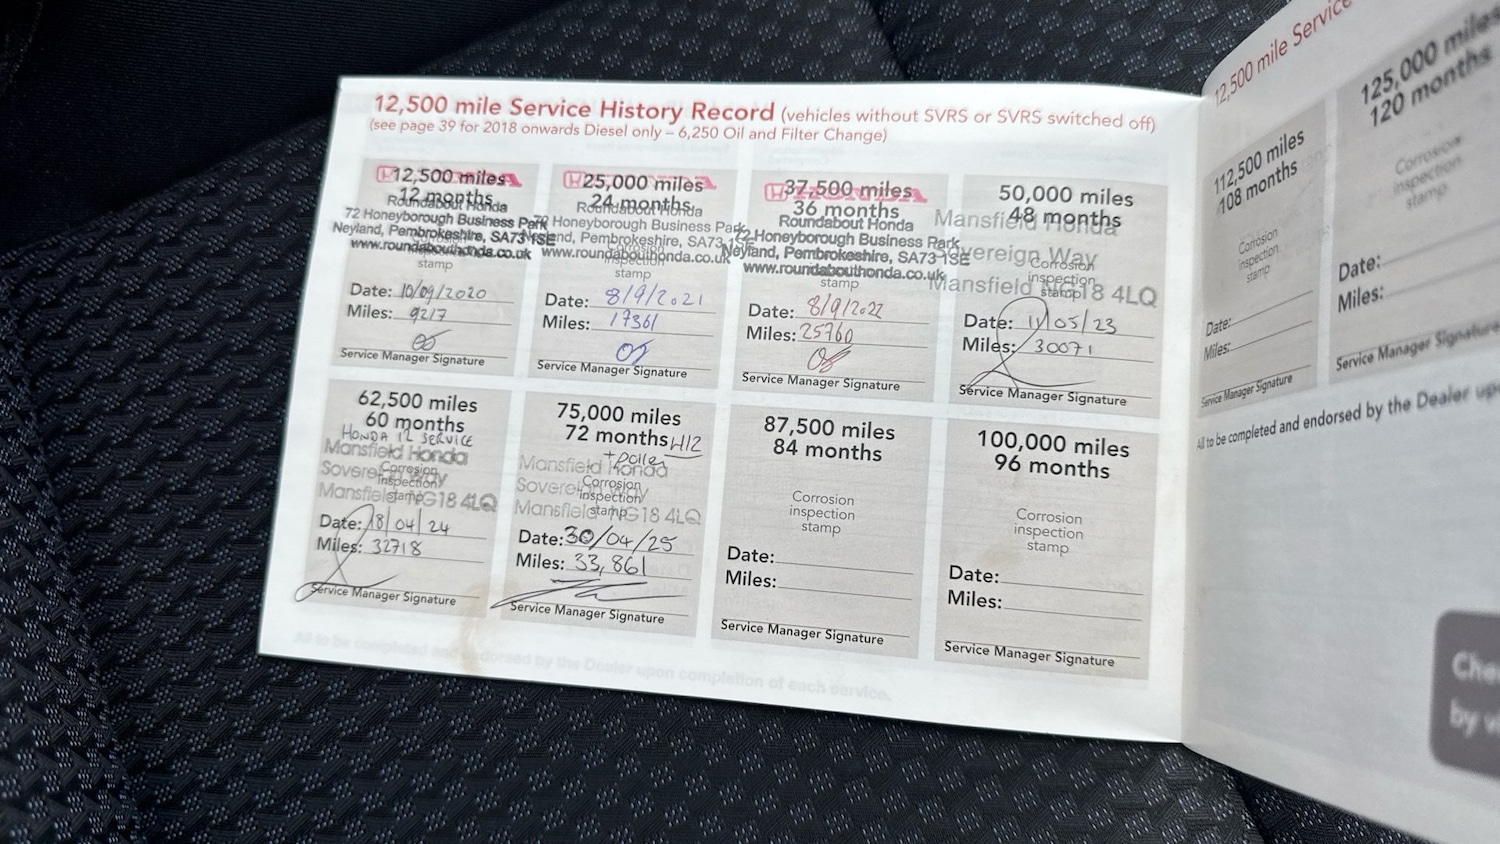 12,500 mile Service History Record (vehicles without SVRS or SVRS switched off)
(see page 39 for 2018 onwards Diesel only – 6,250 Oil and Filter Change)
12,500 miles
12 months
Roundabout Honda
72 Honeyborough Business Park
Neyland, Pembrokeshire, SA73 1SE
www.roundabouthonda.co.uk
stamp
Date: 10/09/2020
Miles: 9217
Service Manager Signature
25,000 miles
24 months
Roundabout Honda
72 Honeyborough Business Park
Neyland, Pembrokeshire, SA73 1SE
www.roundabouthonda.co.uk
Corrosion
stamp
Date: 8/9/2021
Miles: 17361
Service Manager Signature
37,500 miles
36 months
Roundabout Honda
72 Honeyborough Business Park
Neyland, Pembrokeshire, SA73 1SE
www.roundabouthonda.co.uk
stamp
Date: 8/9/2022
Miles: 25760
Service Manager Signature
50,000 miles
48 months
Mansfield Honda
Sovereign Way
Mansfield NG18 4LQ
Corrosion
inspection
stamp
Date: 11/05/23
Miles: 30071
Service Manager Signature
62,500 miles
60 months
HONDA 12 SERVICE
Mansfield Honda
Sovereign Way
Mansfield NG18 4LQ
Corrosion
inspection
stamp
Date: 18/04/24
Miles: 32718
Service Manager Signature
75,000 miles
72 months H12
+ Pollen
Mansfield Honda
Sovereign Way
Mansfield NG18 4LQ
Corrosion
inspection
stamp
Date: 30/04/25
Miles: 33,861
Service Manager Signature
87,500 miles
84 months
Corrosion
inspection
stamp
Date:
Miles:
Service Manager Signature
100,000 miles
96 months
Corrosion
inspection
stamp
Date:
Miles:
Service Manager Signature
All to be completed and endorsed by the Dealer upon completion of each service.
12,500 mile Service
112,500 miles
108 months
Corrosion
inspection
stamp
Date:
Miles:
Service Manager Signature
125,000 miles
120 months
Corrosion
inspection
stamp
Date:
Miles:
Service Manager Signature
All to be completed and endorsed by the Dealer
by